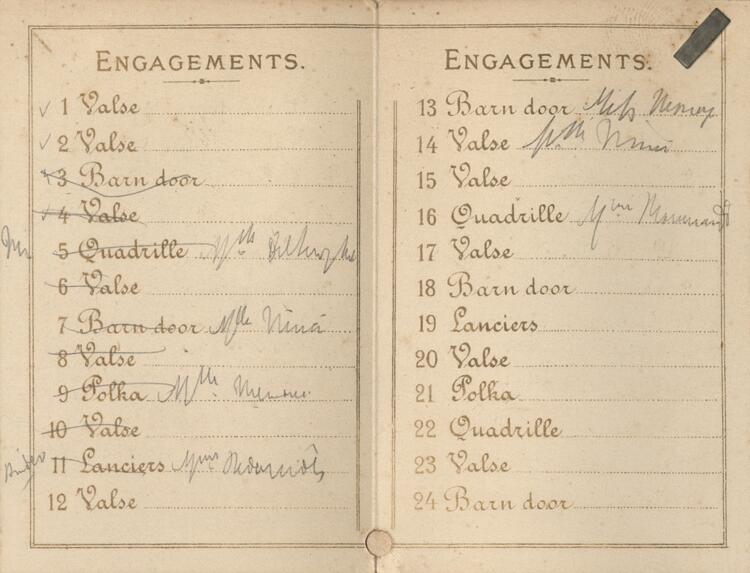 ENGAGEMENTS.
1 Valse
2 Valse
3 Barn door
4 Valse
5 Quadrille Mlle
6 Valse
7 Barn door Mlle Nina
8 Valse
9 Polka Mlle
10 Valse
11 Lanciers Mme
12 Valse
ENGAGEMENTS.
13 Barn door Miss
14 Valse Mlle Nina
15 Valse
16 Quadrille Mme
17 Valse
18 Barn door
19 Lanciers
20 Valse
21 Polka
22 Quadrille
23 Valse
24 Barn door